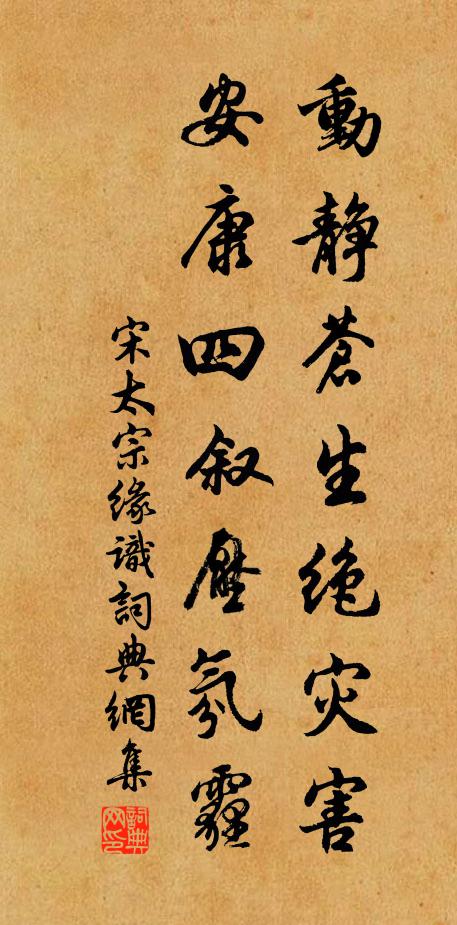 動靜蒼生絶灾害
安康四叙壓氛霾
宋太宗緣識詞典網集
詞典網印